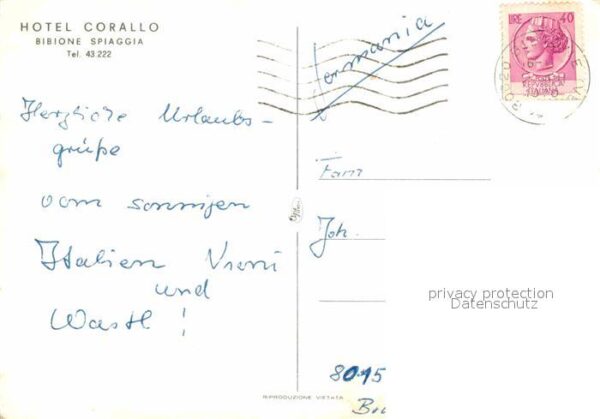 HOTEL CORALLO
BIBIONE SPIAGGIA
Tel. 43.222
Herzliche Urlaubs-
grüße
vom sonnigen
Italien Vroni
und
Wastl !
Germania
LIRE 40
REPVBBLICA
ITALIANA
Fam
Joh.
8015
RIPRODUZIONE VIETATA
privacy protection
Datenschutz